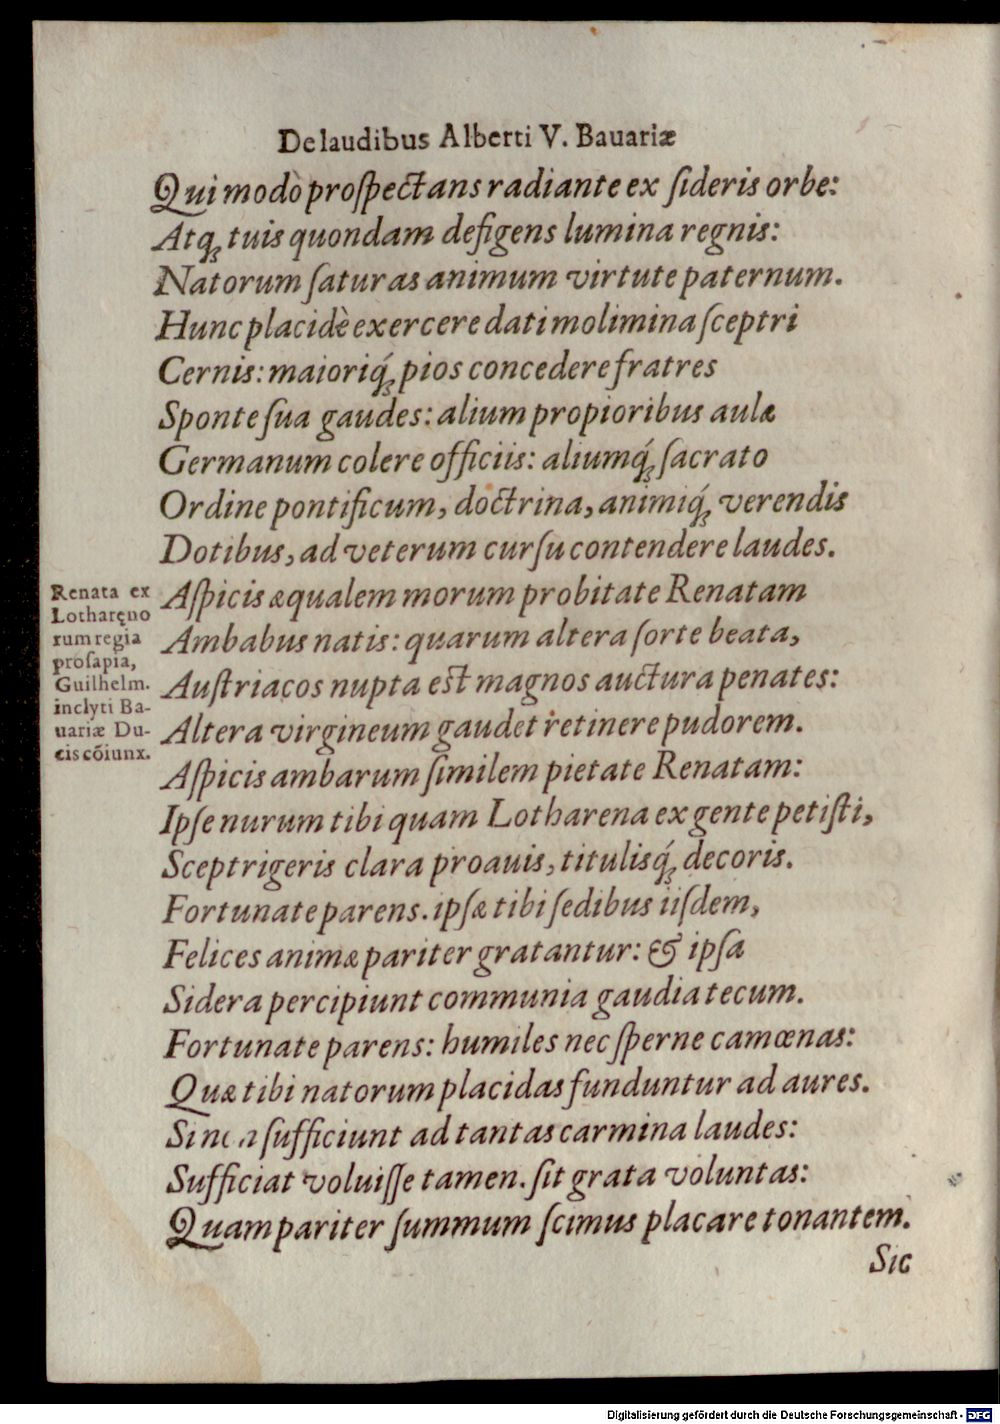 De laudibus Alberti V. Bauariæ
Qui modò proſpectans radiante ex ſideris orbe:
Atq́ꝫ tuis quondam defigens lumina regnis:
Natorum ſaturas animum virtute paternum.
Hunc placidè exercere dati molimina ſceptri
Cernis: maioriq́ꝫ pios concedere fratres
Sponte ſua gaudes: alium propioribus aulæ
Germanum colere officiis: aliumq́ꝫ ſacrato
Ordine pontificum, doctrina, animiq́ꝫ verendis
Dotibus, ad veterum curſu contendere laudes.
Renata ex
Lotharęno
rum regia
proſapia,
Guilhelm.
inclyti Ba-
uariæ Du-
cis cōiunx.
Aſpicis æqualem morum probitate Renatam
Ambabus natis: quarum altera ſorte beata,
Auſtriacos nupta eſt magnos auctura penates:
Altera virgineum gaudet retinere pudorem.
Aſpicis ambarum ſimilem pietate Renatam:
Ipſe nurum tibi quam Lotharena ex gente petiſti,
Sceptrigeris clara proauis, titulisq́ꝫ decoris.
Fortunate parens. ipſæ tibi ſedibus iiſdem,
Felices animæ pariter gratantur: & ipſa
Sidera percipiunt communia gaudia tecum.
Fortunate parens: humiles nec ſperne camœnas:
Quæ tibi natorum placidas funduntur ad aures.
Si ſufficiunt ad tantas carmina laudes:
Sufficiat voluiſſe tamen. ſit grata voluntas:
Quam pariter ſummum ſcimus placare tonantem.
Sic
Digitalisierung gefördert durch die Deutsche Forschungsgemeinschaft - DFG